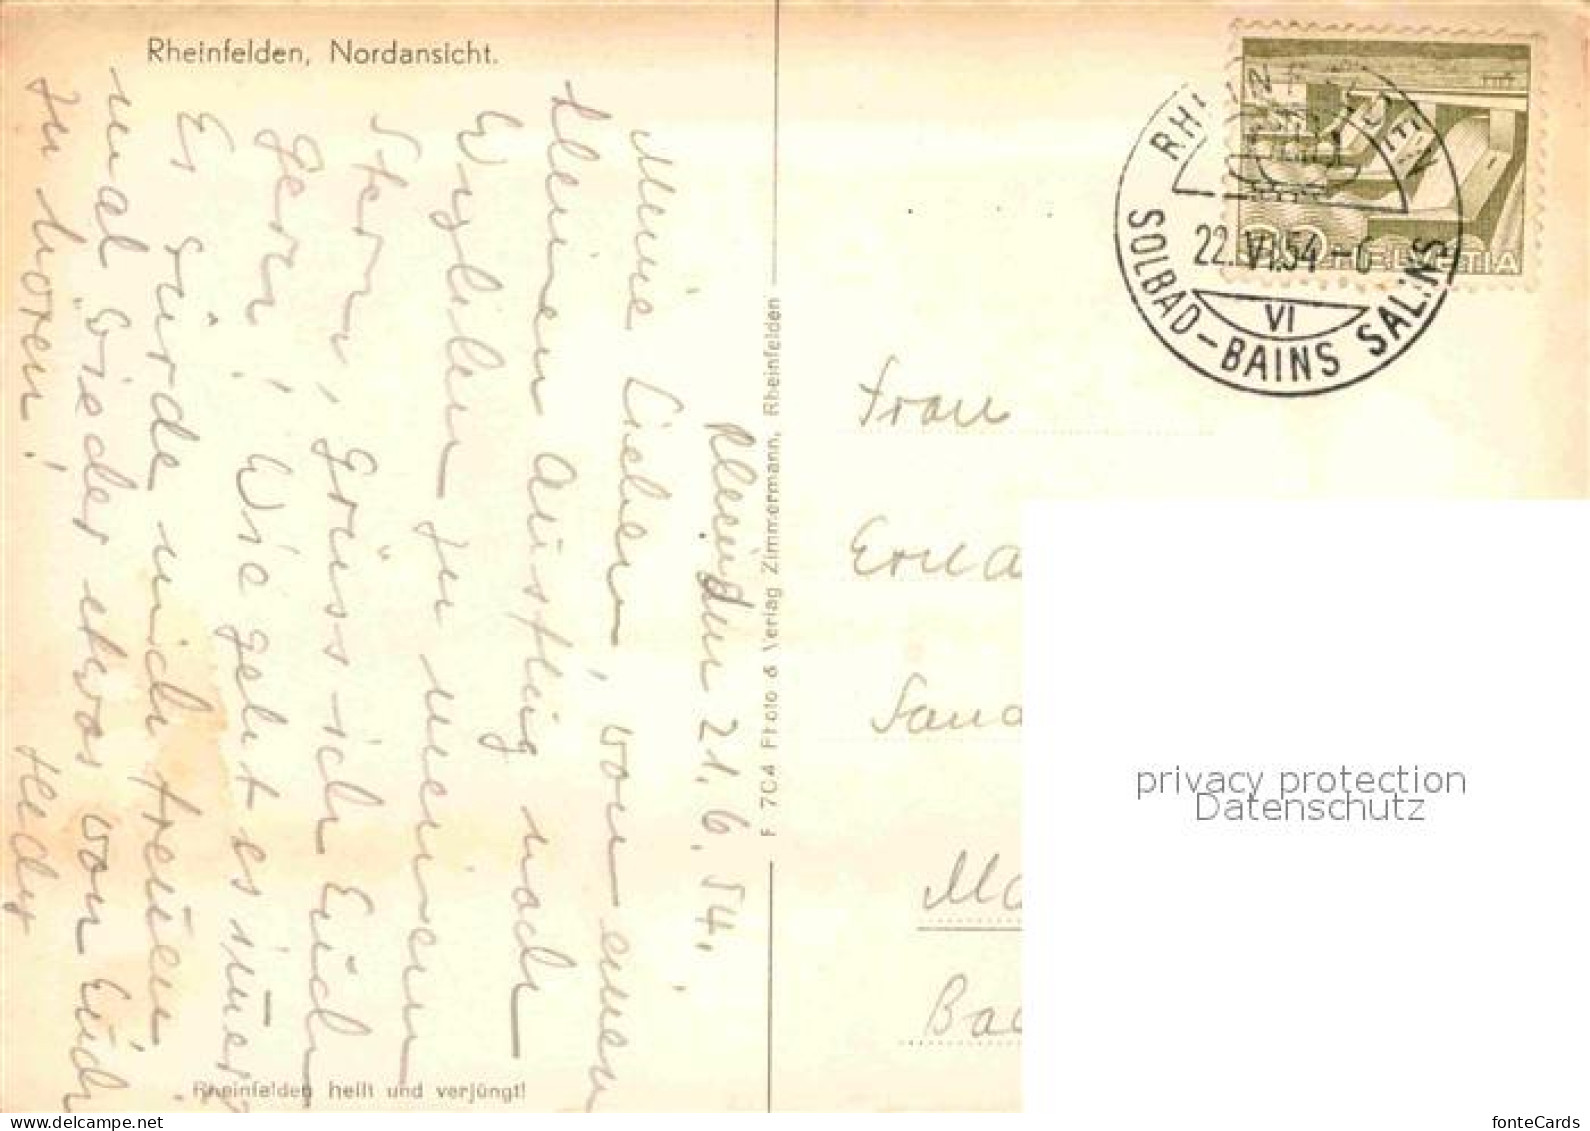 Rheinfelden, Nordansicht.
den 21.6.54.
Meine Lieben, von einem
kleinen Ausflug nach
zu meinem
Stern, grüss ich Euch
gern! Wie geht es immer
Es würde mich freuen
mal wieder etwas von Euch
zu hören!
Hedy
Rheinfelden heilt und verjüngt!
F 704 Photo & Verlag Zimmermann, Rheinfelden
22.VI.54-6
HELVETIA
VI
SOLBAD-BAINS SALINS
Frau
Erna
privacy protection
Datenschutz
Ba
fonteCards
www.delcampe.net